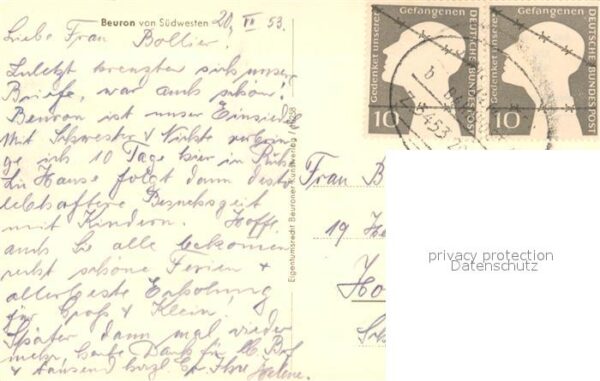 Beuron von Südwesten
20. VII 53.
Liebe Frau Bollier.
Zuletzt kreuzten sich unsere
Briefe, war auch schön!
Beuron ist unser Einsiedeln
Mit Schwester & Nichte verbrin-
ge ich 10 Tage hier in Ruhe.
Zu Hause folgt dann desto
lebhaftere Besuchszeit
mit Kindern. Hoffe
auch Sie alle bekommen
recht schöne Ferien &
allerbeste Erholung
für Groß & Klein.
Später dann mal wieder
mehr, habe Dank für lb. Brf.
& tausend herzl. Gr. Ihre Helene.
Eigentumsrecht Beuroner Kunstverlag
Gedenket unserer Gefangenen
DEUTSCHE BUNDESPOST
10
Gedenket unserer Gefangenen
DEUTSCHE BUNDESPOST
10
b
Frau B
19
privacy protection
Datenschutz